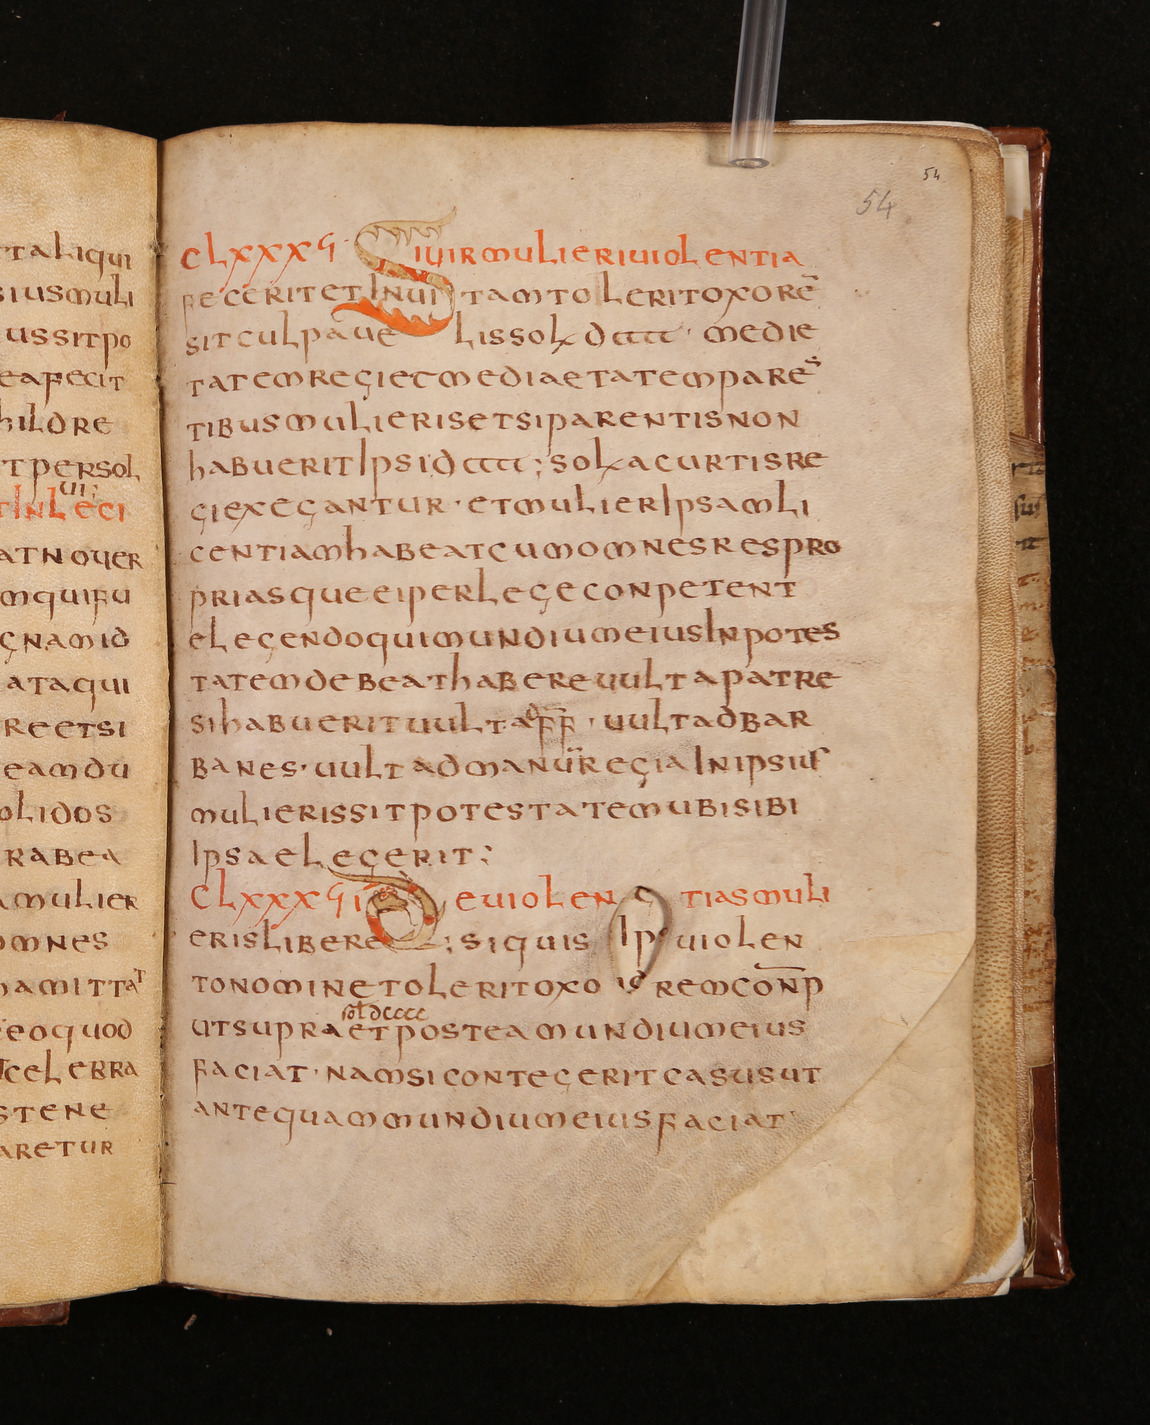 TALIQUI
SIUSMULI
USSITPO
EAFECIT
HILDRE
TPERSOL
UI;
TINLEGI
ATNOUER
MQUIFU
GNAMID
ATAQUI
REETSI
EAMDU
OLIDOS
RABEA
AMULIER
OMNES
AMITTAT
EOQUOD
CELEBRA
STENE
ARETUR
54
54
CLXXXVI· SIUIRMULIERIUIOLENTIA
FECERITETINUITAMTOLERITOXORĒ
SITCULPAUELISSOL DCCCC· MEDIE
TATEMREGIETMEDIAETATEMPARENS
TIBUSMULIERISETSIPARENTISNON
HABUERITIPSIDCCCC; SOL ACURTISRE
GIEXEGANTUR· ETMULIERIPSAMLI
CENTIAMHABEATCUMOMNESRESPRO
PRIASQUEEIPERLEGECONPETENT
ELEGENDOQUIMUNDIUMEIUSINPOTES
TATEMDEBEATHABEREUULTAPATRE
SIHABUERITUULTADFF· UULTADBAR
BANES· UULTADMANUREGIAINIPSIUS
MULIERISSITPOTESTATEMUBISIBI
IPSAELEGERIT;
CLXXXVII DEUIOLENTIASMULI
ERISLIBERE; SIQUIS IP UIOLEN
TONOMINETOLERITOXO REMCONP
SOLDCCCC
UTSUPRAETPOSTEAMUNDIUMEIUS
FACIAT· NAMSICONTEGERITCASUSUT
ANTEQUAMMUNDIUMEIUSFACIAT·